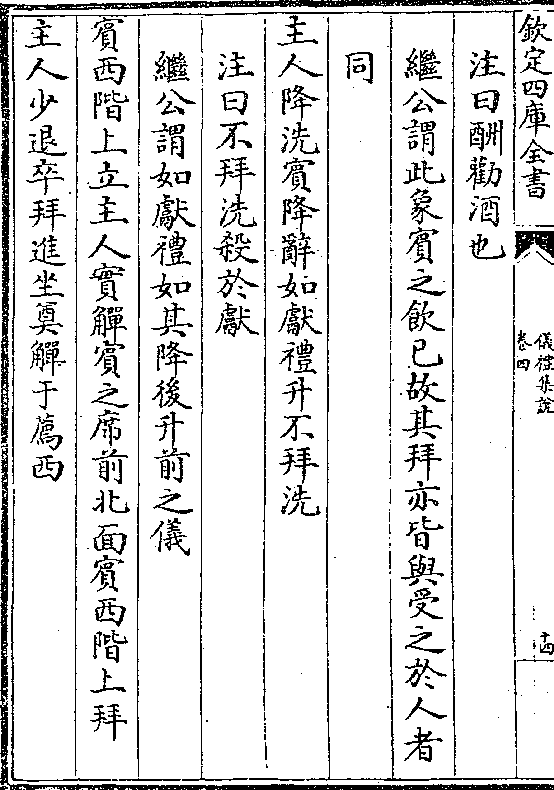 欽定四庫全書
儀禮集說
卷四
十四
注曰酬勸酒也
繼公謂此象賓之飲己故其拜亦皆與受之於人者
同
主人降洗賓降辭如獻禮升不拜洗
注曰不拜洗殺於獻
繼公謂如獻禮如其降後升前之儀
賓西階上立主人實觶賓之席前北面賓西階上拜
主人少退卒拜進坐奠觶于薦西